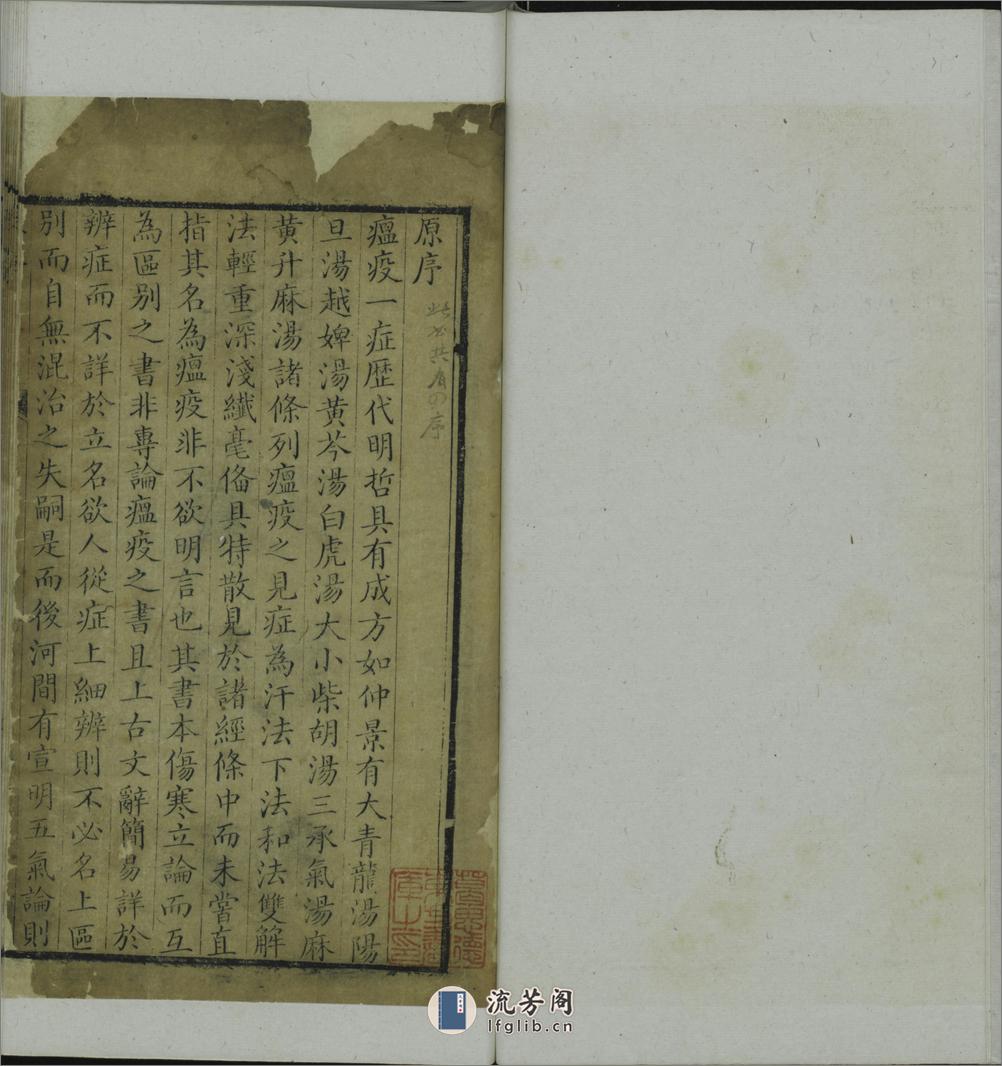 原序
此書共有四序
瘟疫一症歴代明哲具有成方如仲景有大青龍湯陽
旦湯越婢湯黃芩湯白虎湯大小柴胡湯三承氣湯麻
黃升麻湯諸條列瘟疫之見症為汗法下法和法雙解
法輕重深淺纖毫俻具特散見於諸經條中而未嘗直
指其名為瘟疫非不欲明言也其書本傷寒立論而互
為區别之書非專論瘟疫之書且上古文辭簡易詳於
辨症而不詳於立名欲人從症上細辨則不必名上區
别而自無混治之失嗣是而後河間有宣明五氣論則
流芳阁
lfglib.cn